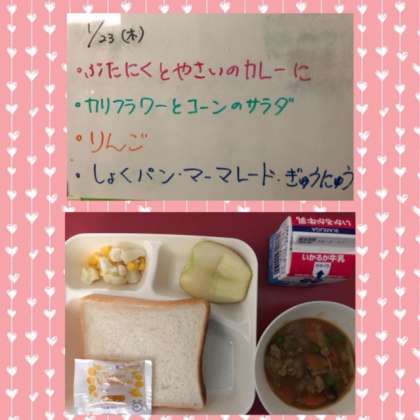 1/23(木)
・ぶたにくとやさいのカレーに
・カリフラワーとコーンのサラダ
・りんご
・しょくパン・マーマレード・ぎゅうにゅう
いかるが牛乳
いかるが牛乳